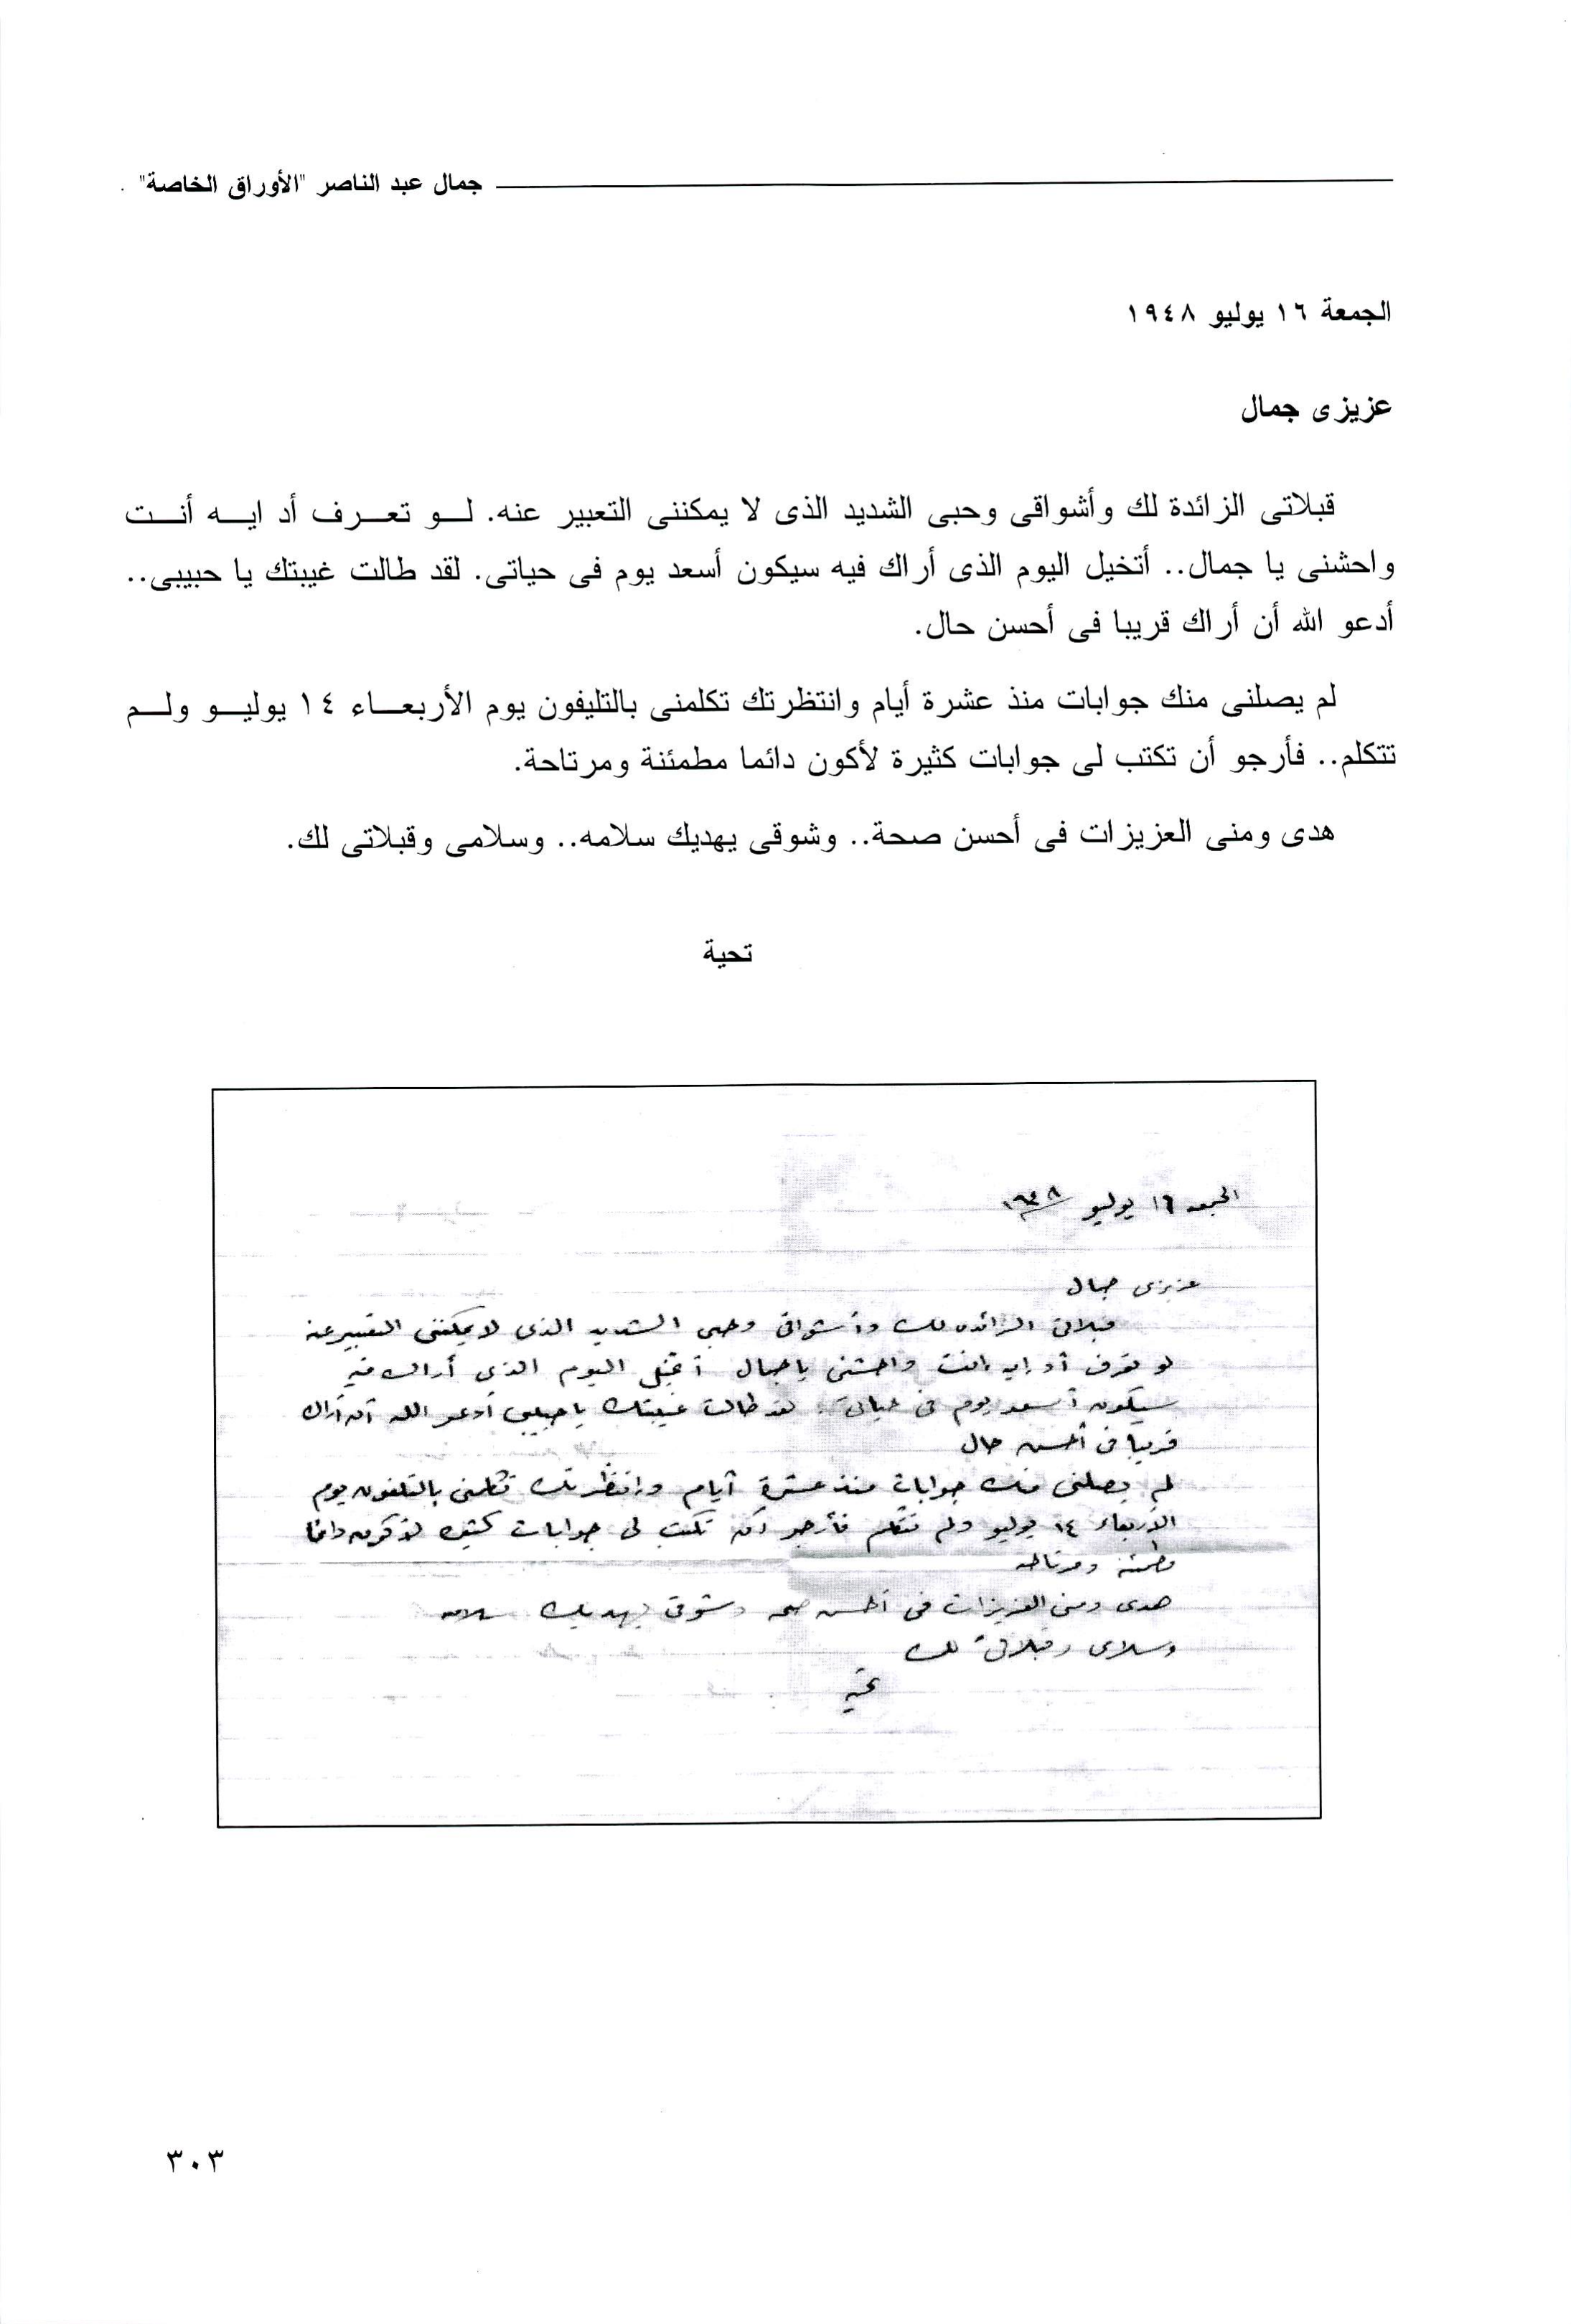 جمال عبد الناصر "الأوراق الخاصة"
الجمعة ١٦ يوليو ١٩٤٨
عزيزى جمال
قبلاتى الزائدة لك وأشواقى وحبى الشديد الذى لا يمكننى التعبير عنه. لو تعرف أد ايه أنت
واحشنى يا جمال.. أتخيل اليوم الذى أراك فيه سيكون أسعد يوم فى حياتى. لقد طالت غيبتك يا حبيبى..
أدعو الله أن أراك قريبا فى أحسن حال.
لم يصلنى منك جوابات منذ عشرة أيام وانتظرتك تكلمنى بالتليفون يوم الأربعاء ١٤ يوليو ولم
تتكلم.. فأرجو أن تكتب لى جوابات كثيرة لأكون دائما مطمئنة ومرتاحة.
هدى ومنى العزيزات فى أحسن صحة.. وشوقى يهديك سلامه.. وسلامى وقبلاتى لك.
تحية
الجمعه ١٦ يوليو ١٩٤٨
عزيزى جمال
قبلاتى الزائده لك وأشواقى وحبى الشديد الذى لا يمكننى التعبير عنه
لو تعرف أد ايه انت واحشنى يا جمال أتخيل اليوم الذى أراك فيه
سيكون أسعد يوم فى حياتى. لقد طالت غيبتك يا حبيبى أدعو الله أن أراك
قريبا فى أحسن حال
لم يصلنى منك جوابات منذ عشرة أيام وانتظرتك تكلمنى بالتلفون يوم
الأربعاء ١٤ يوليو ولم تتكلم فأرجو أن تكتب لى جوابات كثيره لأكون دائما
مطمئنه ومرتاحه
هدى ومنى العزيزات فى أحسن صحه وشوقى يهديك سلامه
وسلامى وقبلاتى لك
تحيه
٣٠٣